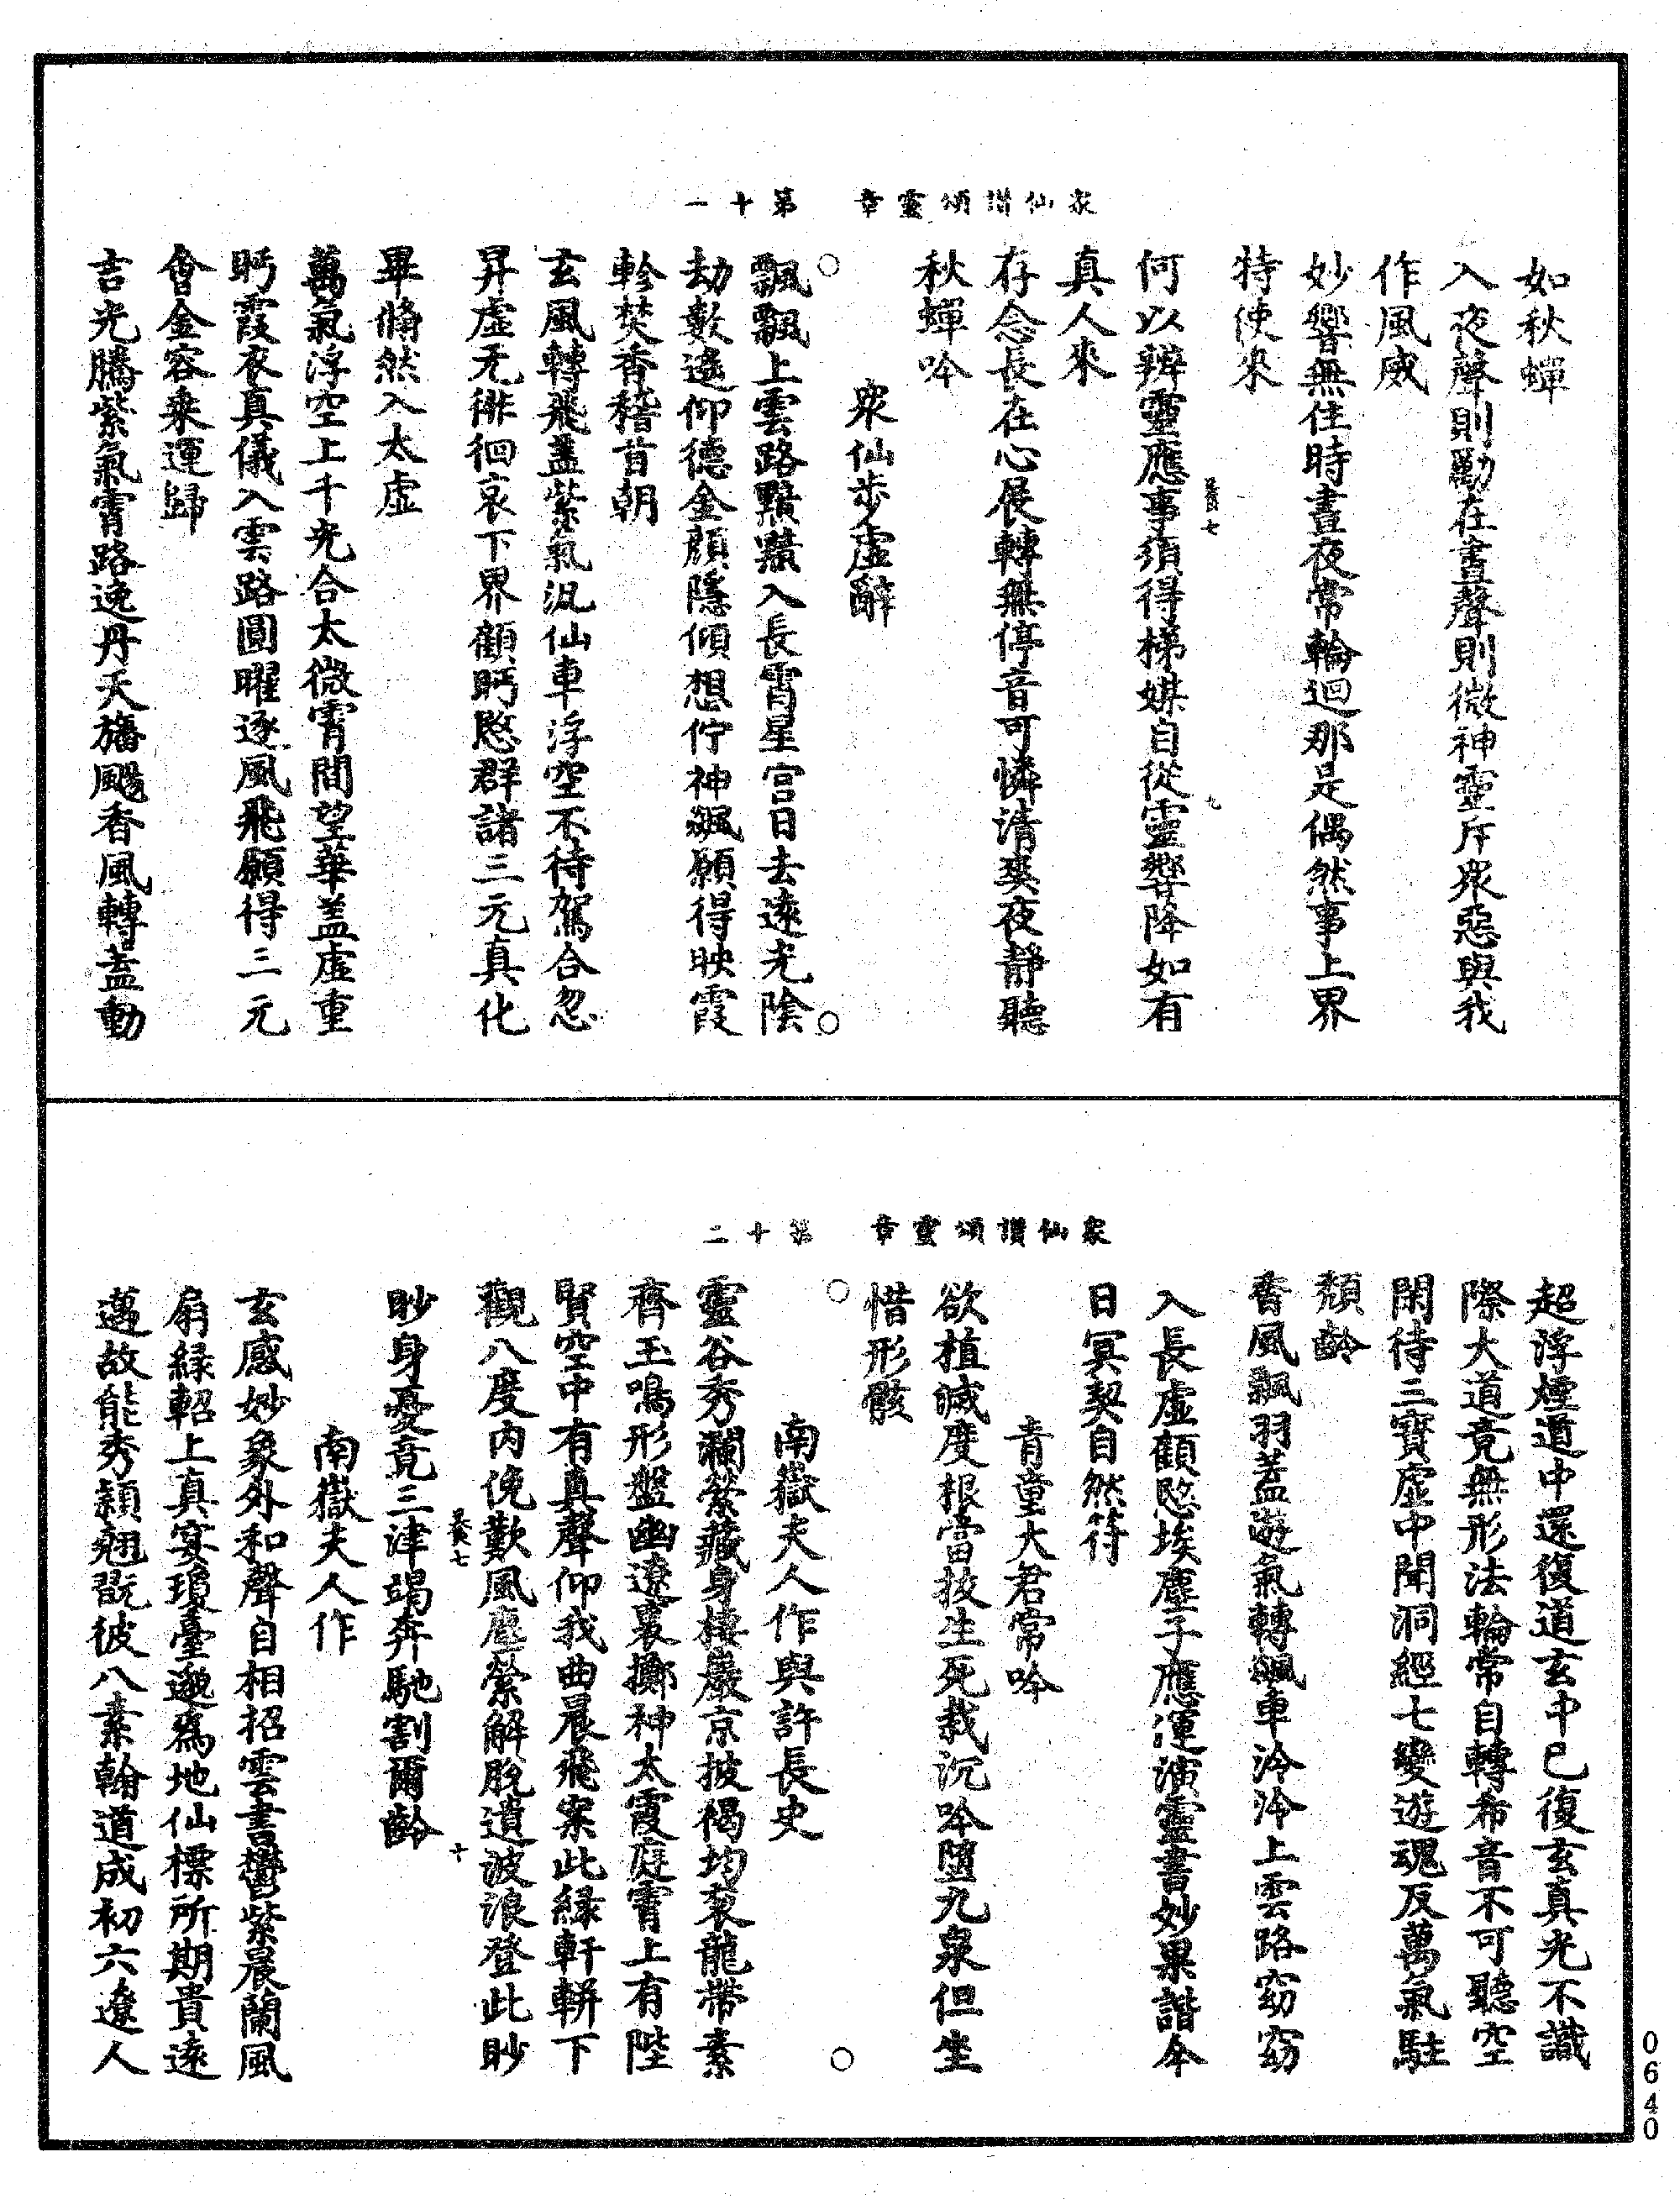 衆仙讃頌靈章　第十一
如秋蟬
入夜聲則勵在晝聲則微神靈斥衆惡與我
作風威
妙響無住時晝夜常輪迴那是偶然事上界
特使來
何以辨靈應事須得梯媒自從靈響降如有
真人來
存念長在心展轉無停音可憐清爽夜靜聽
秋蟬吟
衆仙步虛辭
飄飄上雲路黯黯入長霄星宫日去遠光陰
劫數遙仰德金顔隱傾想佇神飊願得映霞
軫焚香稽首朝
玄風轉飛蓋紫氣汎仙車浮空不待駕合忽
昇虛无徘徊哀下界顧眄愍群諸三元真化
畢翛然入太虛
萬氣浮空上千光合太微霄間望華盖虛重
眄霞衣真儀入雲路圓曜逐風飛願得三元
會金容乘運歸
吉光騰紫氣霄路逸丹天旛颺香風轉盖動
九
衆仙讃頌靈章　第十二
超浮煙道中還復道玄中已復玄真光不識
際大道竟無形法輪常自轉希音不可聽空
閑待三寶虛中聞洞經七變遊魂反萬氣駐
頽齡
香風飄羽盖遊氣轉飊車泠泠上雲路窈窈
入長虛顧愍埃塵子應運演靈書妙果諧今
日冥契自然符
青童大君常吟
欲植滅度根當拔生死栽沉吟墮九泉但坐
惜形骸
南嶽夫人作與許長史
靈谷秀瀾縈藏身棲巖京披褐均衮龍帶素
齊玉鳴形盤幽遼裏擲神太霞庭霄上有陛
賢空中有真聲仰我曲晨飛案此緑軒軿下
觀八度内俛歎風塵縈解脱遺波浪登此眇
眇身憂竟三津竭奔馳割爾齡
十
南嶽夫人作
玄感妙象外和聲自相招雲書鬱紫晨蘭風
扇緑軺上真宴瓊臺邈爲地仙標所期貴遠
邁故能秀穎翹翫彼八素翰道成初六遼人
0640